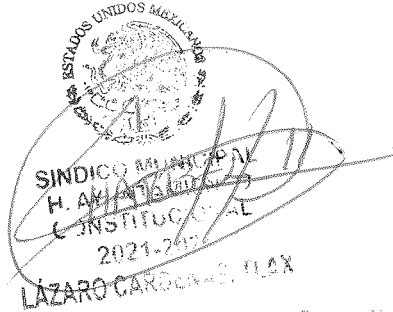 ESTADOS UNIDOS MEXICANOS
SINDICO MUNICIPAL
H. AYUNTAMIENTO
CONSTITUCIONAL
2021-202
LÁZARO CARDENAS, TLAX